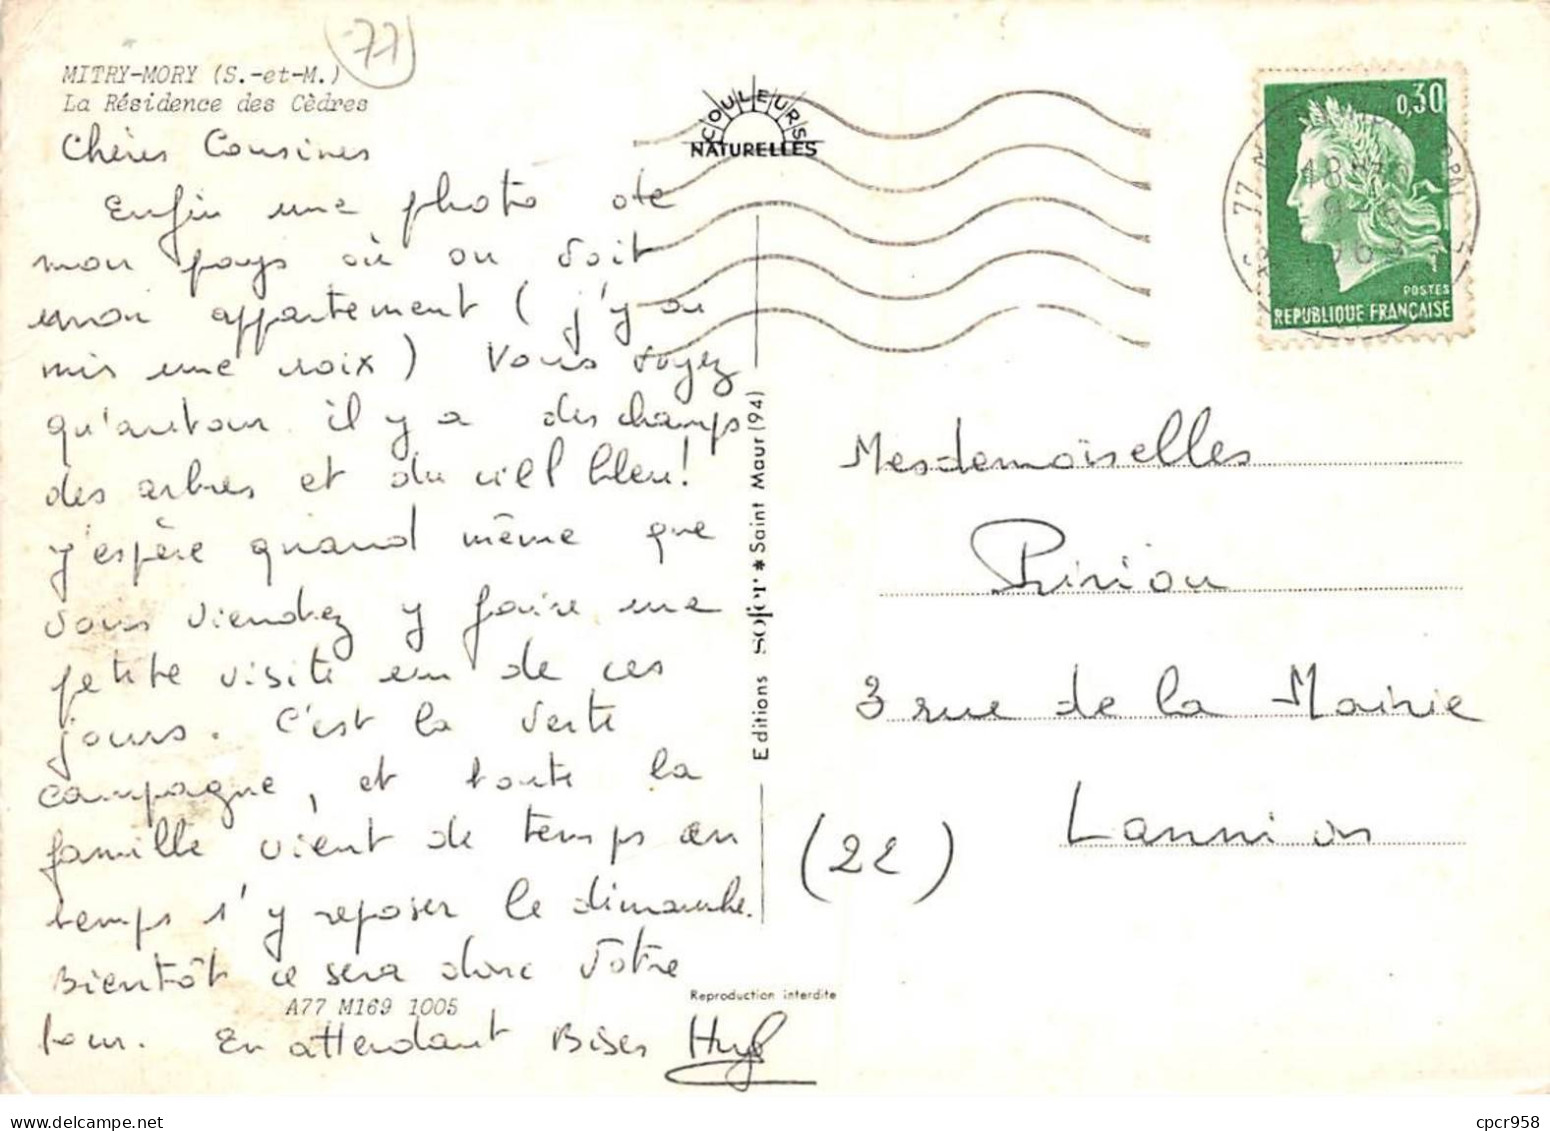 77
MITRY-MORY (S.-et-M.)
La Résidence des Cèdres
Chères Cousines
Enfin une photo de
mon pays où on voit
mon appartement (j'y ai
mis une croix) Vous voyez
qu'autour il y a des champs
des arbres et du ciel bleu!
J'espère quand même que
vous viendrez y faire une
petite visite un de ces
jours. C'est la verte
campagne, et toute la
famille vient de temps en
temps s'y reposer le dimanche.
Bientôt ce sera donc votre
A77 M169 1005
tour. En attendant Bises
COULEURS
NATURELLES
Editions SOFER * Saint Maur (94)
Reproduction interdite
0,30
POSTES
REPUBLIQUE FRANÇAISE
77
18H
Mesdemoiselles
Pririou
3 rue de la Mairie
Lannion
(22)
cpcr958